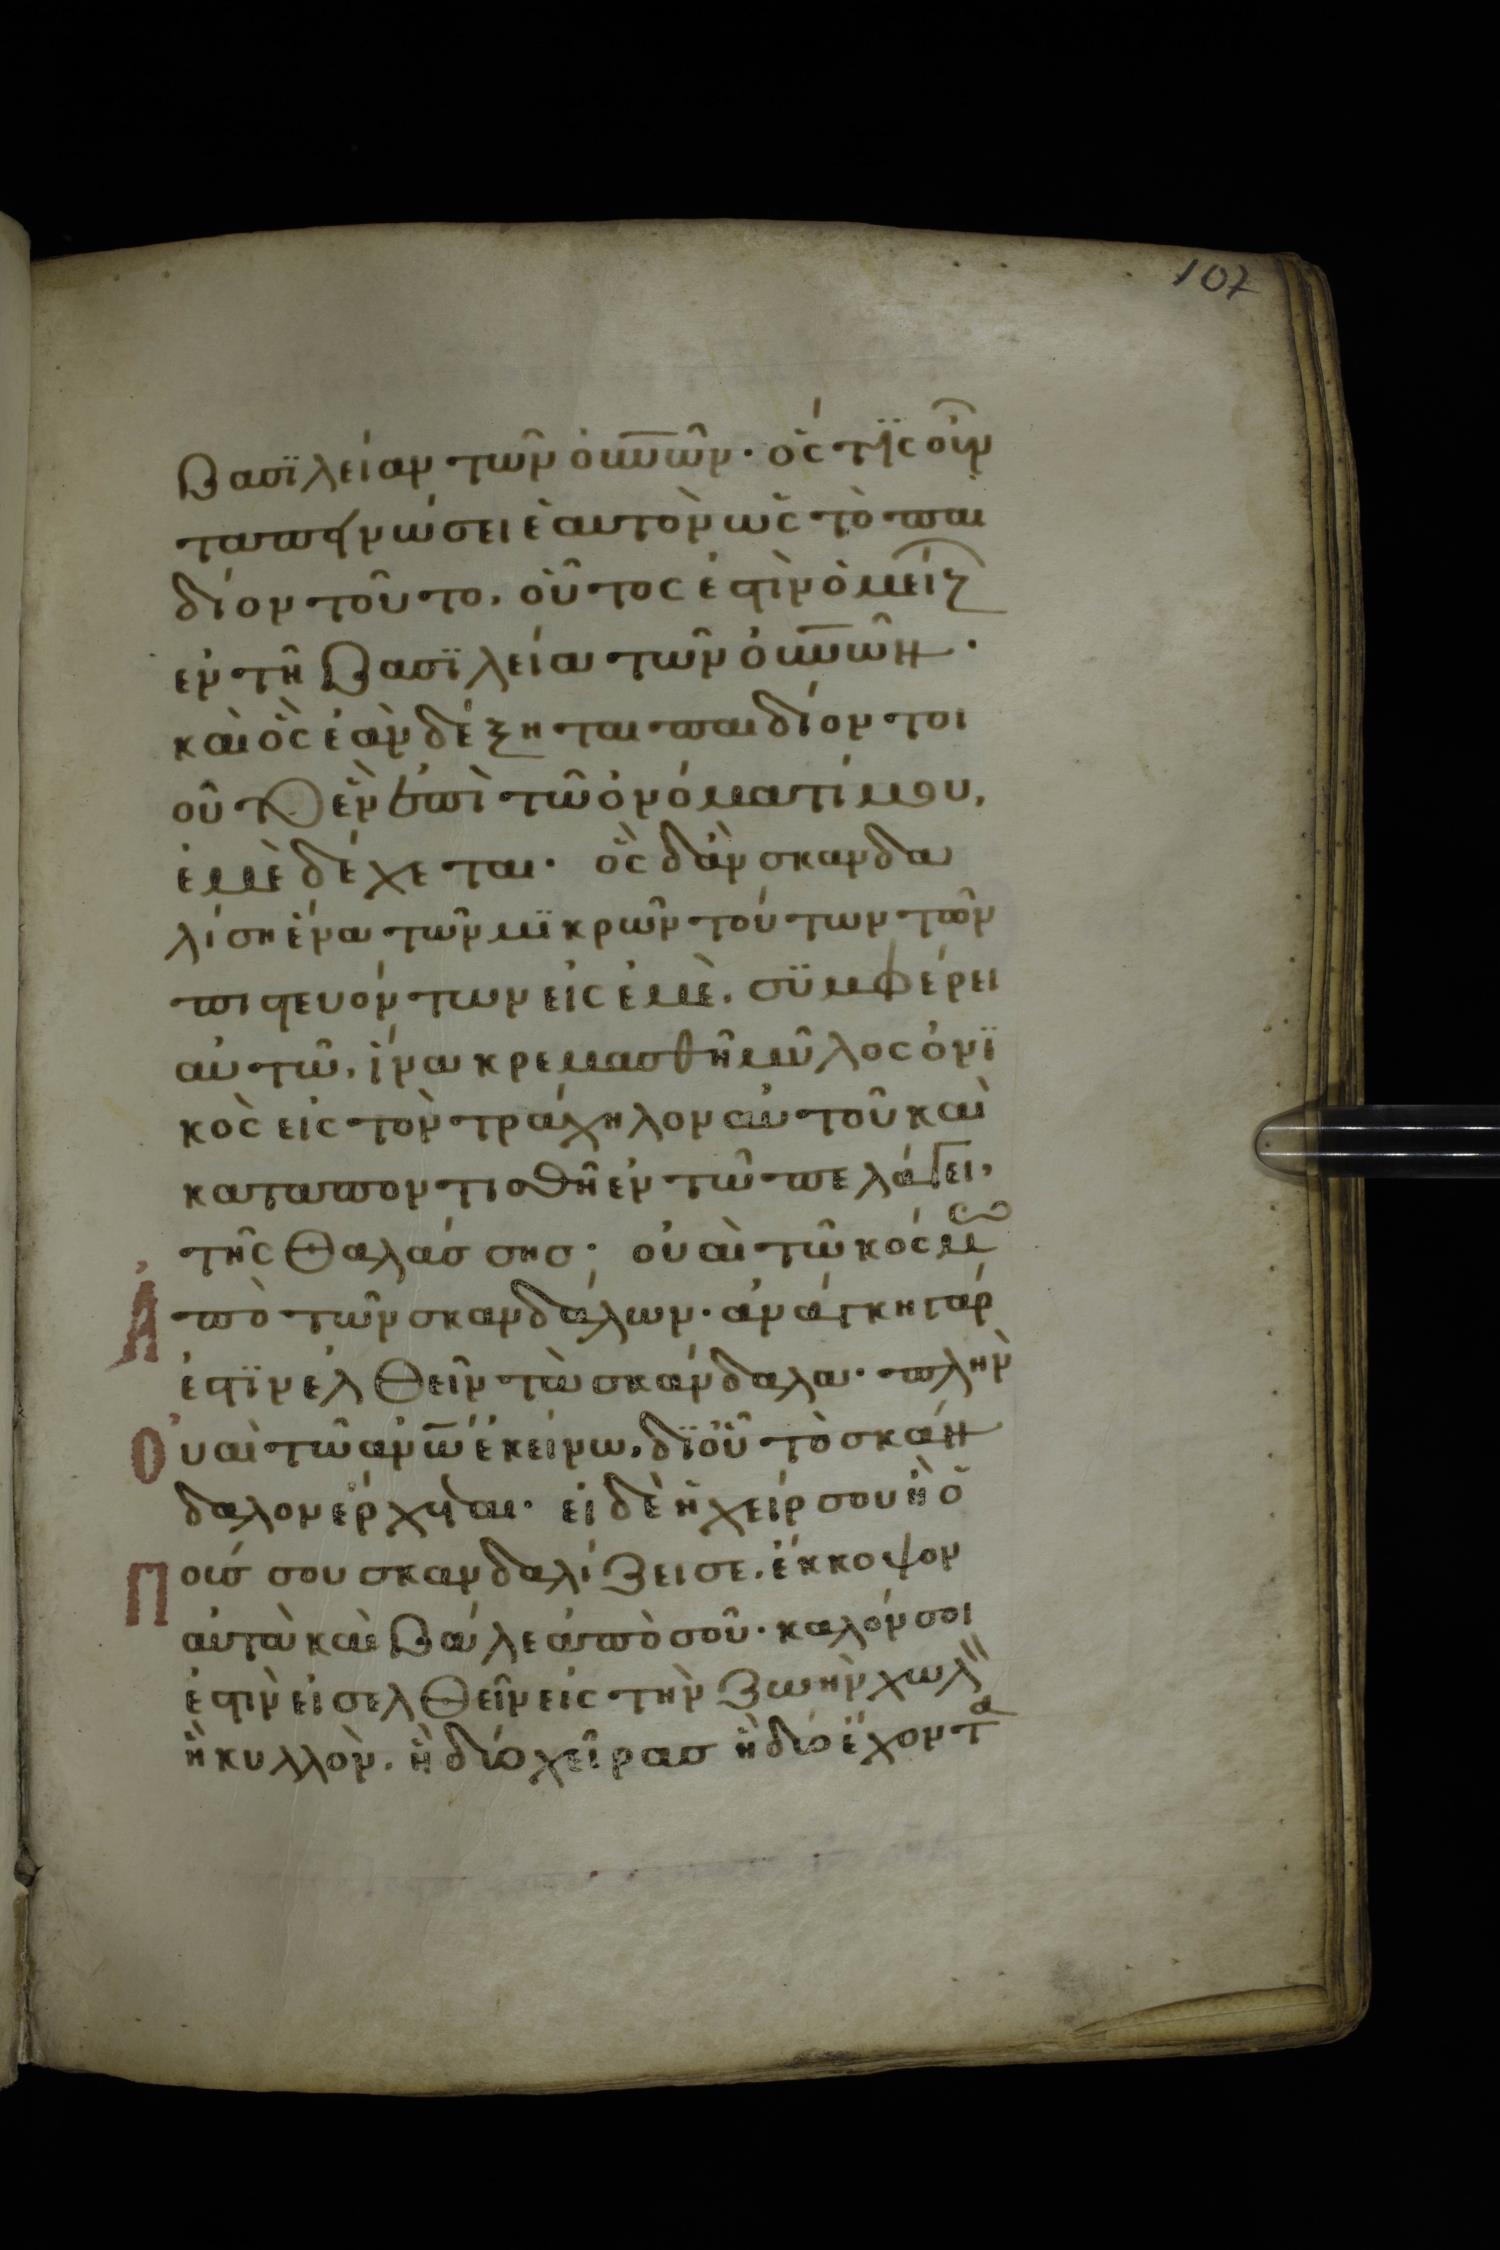 107
βασϊλείαν τῶν οὐνῶν· ὅς τίς οὖν
ταπϊνώσει ἑαυτὸν ὡς τὸ παι
δίον τοῦτο, οὗτος ἐστὶν ὁ μείζ
ἐν τῆ βασϊλεία τῶν οὐνῶν·
καὶ ὃς ἐὰν δέξηται παιδίον τοι
οῦτο ἓν ἐπὶ τῶ ὀνόματί μου,
ἐμὲ δέχεται· ὃς δἂν σκανδα
λίση ἕνα τῶν μϊκρῶν τούτων τῶν
πιστευόντων εἰς ἐμὲ, σϋμφέρει
αὐτῶ, ἵνα κρεμασθῆ μῦλος ὀνϊ
κὸς εἰς τὸν τράχηλον αὐτοῦ καὶ
καταποντισθῆ ἐν τῶ πελάγει,
τῆς θαλάσσησ· οὐαὶ τῶ κόσμ
Ἀπὸ τῶν σκανδάλων· ἀνάγκη γάρ
ἐστϊν ἐλθεῖν τὰ σκάνδαλα· πλὴν
Οὐαὶ τῶ ἀνῶ ἐκείνω, δϊ οὗ τὸ σκάν
δαλον ἔρχεται· εἰ δὲ ἡ χείρ σου ἢ ὁ
Πούσ σου σκανδαλίζει σε, ἔκκοψον
αὐτὰ καὶ βάλε ἀπὸ σοῦ· καλόν σοι
ἐστὶν εἰσελθεῖν εἰς τὴν ζωὴν χωλ
ἢ κυλλὸν, ἢ δύο χεῖρασ ἢ δύο ἔχοντα